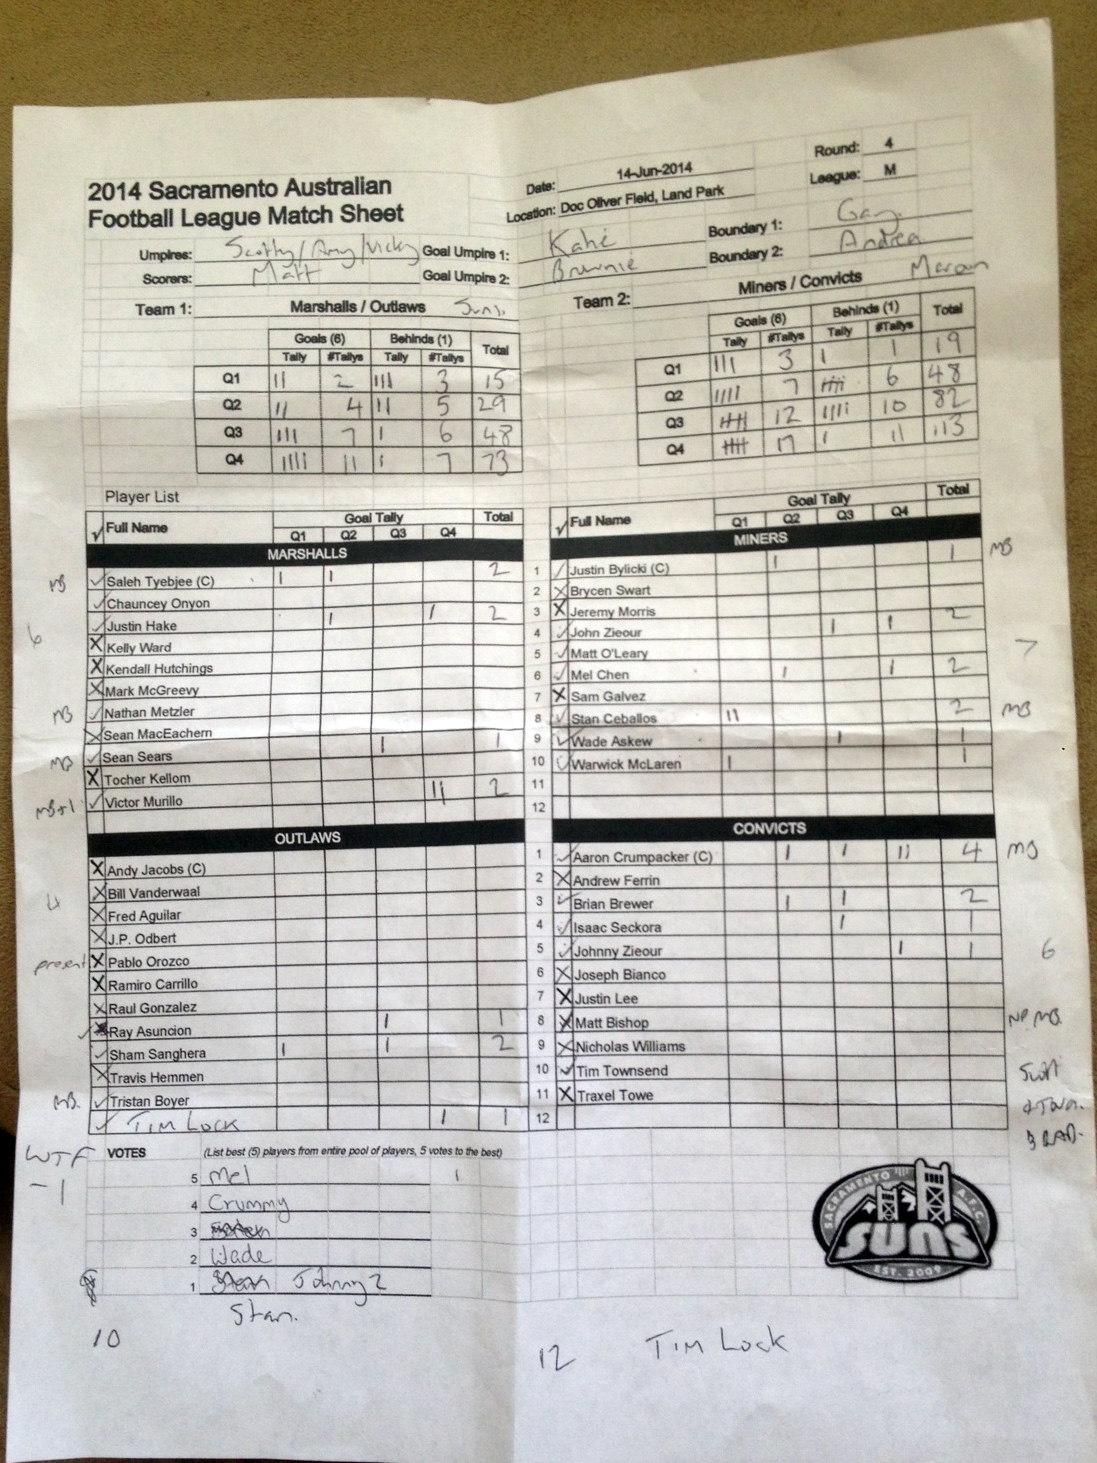 2014 Sacramento Australian
Football League Match Sheet
Date: 14-Jun-2014 Round: 4
Location: Doc Oliver Field, Land Park League: M
Umpires: Scotty/Amy/Vicky Goal Umpire 1: Kahi Boundary 1: Gary
Scorers: Matt Goal Umpire 2: Brownie Boundary 2: Andrea
Team 1: Marshalls / Outlaws Suns. Team 2: Miners / Convicts Maroon
Goals (6) Behinds (1) Total
Tally #Tallys Tally #Tallys
Q1 II 2 III 3 15
Q2 II 4 II 5 29
Q3 III 7 I 6 48
Q4 IIII 11 I 7 73
Goals (6) Behinds (1) Total
Tally #Tallys Tally #Tallys
Q1 III 3 I 1 19
Q2 IIII 7 IIIII 6 48
Q3 IIIII 12 IIII 10 82
Q4 IIIII 17 I 11 113
Player List
✓ Full Name Goal Tally Total
Q1 Q2 Q3 Q4
MARSHALLS
MB ✓ Saleh Tyebjee (C) I I 2
✓ Chauncey Onyon
6 ✓ Justin Hake I I 2
X Kelly Ward
X Kendall Hutchings
X Mark McGreevy
MB ✓ Nathan Metzler
X Sean MacEachern
MB ✓ Sean Sears I 1
X Tocher Kellom
MB+1 ✓ Victor Murillo II 2
OUTLAWS
X Andy Jacobs (C)
4 X Bill Vanderwaal
X Fred Aguilar
X J.P. Odbert
present X Pablo Orozco
X Ramiro Carrillo
X Raul Gonzalez
✓ Ray Asuncion I 1
✓ Sham Sanghera I I 2
X Travis Hemmen
MB. ✓ Tristan Boyer
✓ TIM LOCK I 1
✓ Full Name Goal Tally Total
Q1 Q2 Q3 Q4
MINERS
1 ✓ Justin Bylicki (C) I 1 MB
2 X Brycen Swart
3 X Jeremy Morris
4 ✓ John Zieour I I 2
5 ✓ Matt O'Leary 7
6 ✓ Mel Chen I I 2
7 X Sam Galvez
8 ✓ Stan Ceballos II 2 MB
9 ✓ Wade Askew I 1
10 ✓ Warwick McLaren I 1
11
12
CONVICTS
1 ✓ Aaron Crumpacker (C) I I II 4 MB
2 X Andrew Ferrin
3 ✓ Brian Brewer I I 2
4 ✓ Isaac Seckora I 1
5 ✓ Johnny Zieour I 1 6
6 X Joseph Bianco
7 X Justin Lee
8 X Matt Bishop NP MB.
9 X Nicholas Williams
10 ✓ Tim Townsend
11 X Traxel Towe
12
WTF
-1
VOTES (List best (5) players from entire pool of players, 5 votes to the best)
5 Mel 1
4 Crummy
3
2 Wade
1 Johnny Z
Stan.
10
12 TIM LOCK
SACRAMENTO A.F.C.
SUNS
EST. 2009